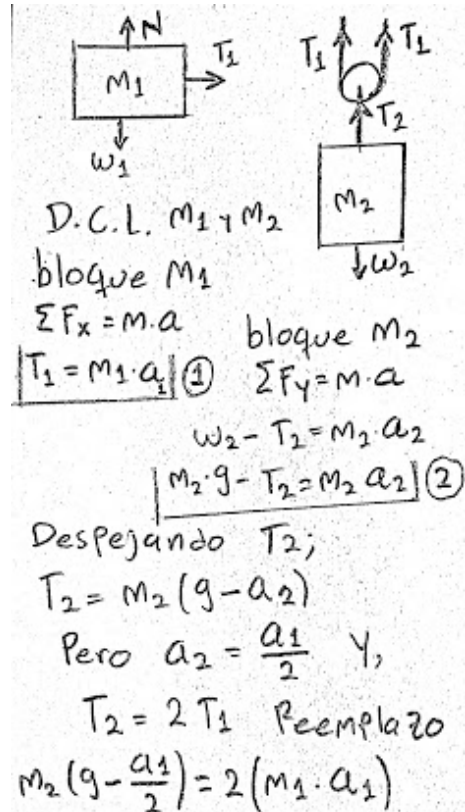 N
T₁
M₁
ω₁
T₁
T₁
T₂
M₂
ω₂
D.C.L. M₁ y M₂
bloque M₁
ΣFx = m·a
T₁ = M₁·a₁ ①
bloque M₂
ΣFy = m·a
ω₂ - T₂ = M₂·a₂
M₂·g - T₂ = M₂ a₂ ②
Despejando T₂;
T₂ = M₂(g - a₂)
Pero a₂ = a₁/2 Y,
T₂ = 2T₁ Reemplazo
M₂(g - a₁/2) = 2(M₁·a₁)